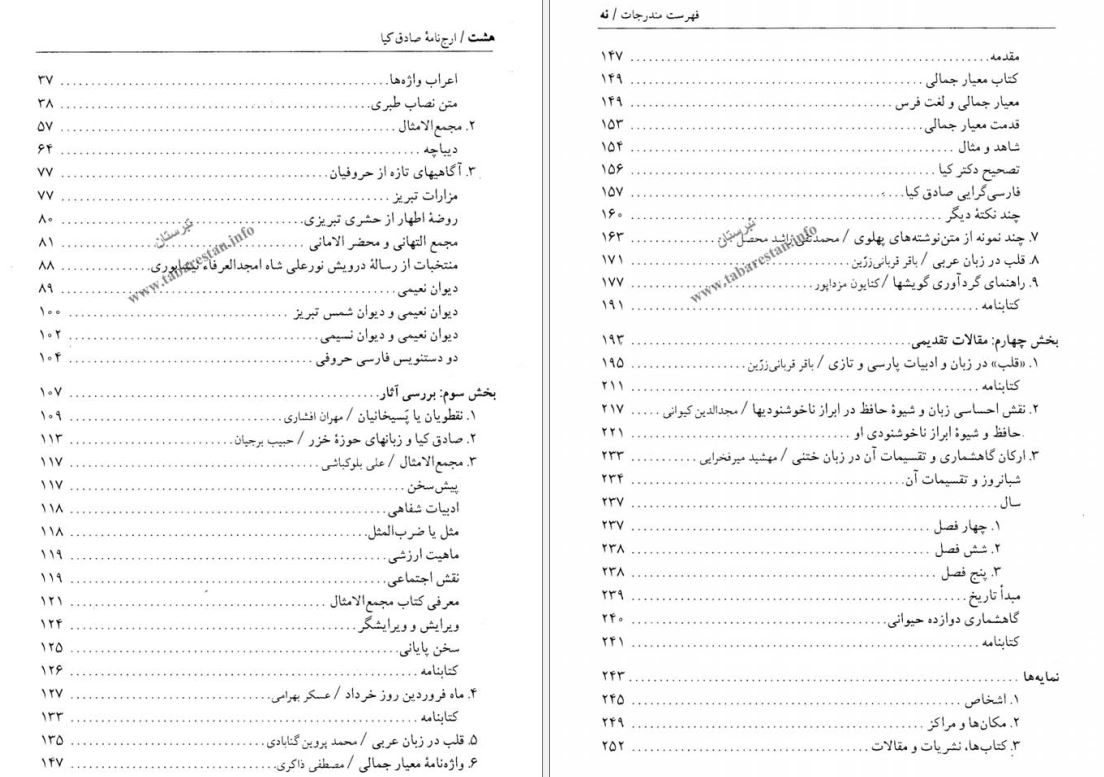 هشت / ارج‌نامهٔ صادق کیا
اعراب واژه‌ها ۳۷
متن نصاب طبری ۳۸
۲. مجمع‌الامثال ۵۷
دیباچه ۶۴
۳. آگاهیهای تازه از حروفیان ۷۷
مزارات تبریز ۷۷
روضهٔ اطهار از حشری تبریزی ۸۰
مجمع التهانی و محضر الامانی ۸۱
منتخبات از رسالهٔ درویش نورعلی شاه امجدالعرفاء نیشابوری ۸۸
دیوان نعیمی ۸۹
دیوان نعیمی و دیوان شمس تبریز ۱۰۰
دیوان نعیمی و دیوان نسیمی ۱۰۲
دو دستنویس فارسی حروفی ۱۰۴
بخش سوم: بررسی آثار ۱۰۷
۱. نقطویان یا پَسیخانیان / مهران افشاری ۱۰۹
۲. صادق کیا و زبانهای حوزهٔ خزر / حبیب برجیان ۱۱۳
۳. مجمع‌الامثال / علی بلوکباشی ۱۱۷
پیش‌سخن ۱۱۷
ادبیات شفاهی ۱۱۸
مثل یا ضرب‌المثل ۱۱۸
ماهیت ارزشی ۱۱۹
نقش اجتماعی ۱۱۹
معرفی کتاب مجمع‌الامثال ۱۲۱
ویرایش و ویرایشگر ۱۲۴
سخن پایانی ۱۲۵
کتابنامه ۱۲۶
۴. ماه فروردین روز خرداد / عسکر بهرامی ۱۲۷
کتابنامه ۱۳۳
۵. قلب در زبان عربی / محمد پروین گنابادی ۱۳۵
۶. واژه‌نامهٔ معیار جمالی / مصطفی ذاکری ۱۴۷
تبرستان
www.tabarestan.info
فهرست مندرجات / نه
مقدمه ۱۴۷
کتاب معیار جمالی ۱۴۹
معیار جمالی و لغت فرس ۱۴۹
قدمت معیار جمالی ۱۵۳
شاهد و مثال ۱۵۴
تصحیح دکتر کیا ۱۵۶
فارسی‌گرایی صادق کیا ۱۵۷
چند نکتهٔ دیگر ۱۶۰
۷. چند نمونه از متن‌نوشته‌های پهلوی / محمدتقی راشد محصل ۱۶۳
۸. قلب در زبان عربی / باقر قربانی‌زرّین ۱۷۱
۹. راهنمای گردآوری گویشها / کتایون مزداپور ۱۷۷
کتابنامه ۱۹۱
بخش چهارم: مقالات تقدیمی ۱۹۳
۱. «قلب» در زبان و ادبیات پارسی و تازی / باقر قربانی‌زرّین ۱۹۵
کتابنامه ۲۱۱
۲. نقش احساسی زبان و شیوهٔ حافظ در ابراز ناخوشنودیها / مجدالدین کیوانی ۲۱۷
حافظ و شیوهٔ ابراز ناخوشنودی او ۲۲۱
۳. ارکان گاهشماری و تقسیمات آن در زبان ختنی / مهشید میرفخرایی ۲۳۳
شبانروز و تقسیمات آن ۲۳۴
سال ۲۳۷
۱. چهار فصل ۲۳۷
۲. شش فصل ۲۳۸
۳. پنج فصل ۲۳۸
مبدأ تاریخ ۲۳۹
گاهشماری دوازده حیوانی ۲۴۰
کتابنامه ۲۴۱
نمایه‌ها ۲۴۳
۱. اشخاص ۲۴۵
۲. مکان‌ها و مراکز ۲۴۹
۳. کتاب‌ها، نشریات و مقالات ۲۵۲
تبرستان
www.tabarestan.info